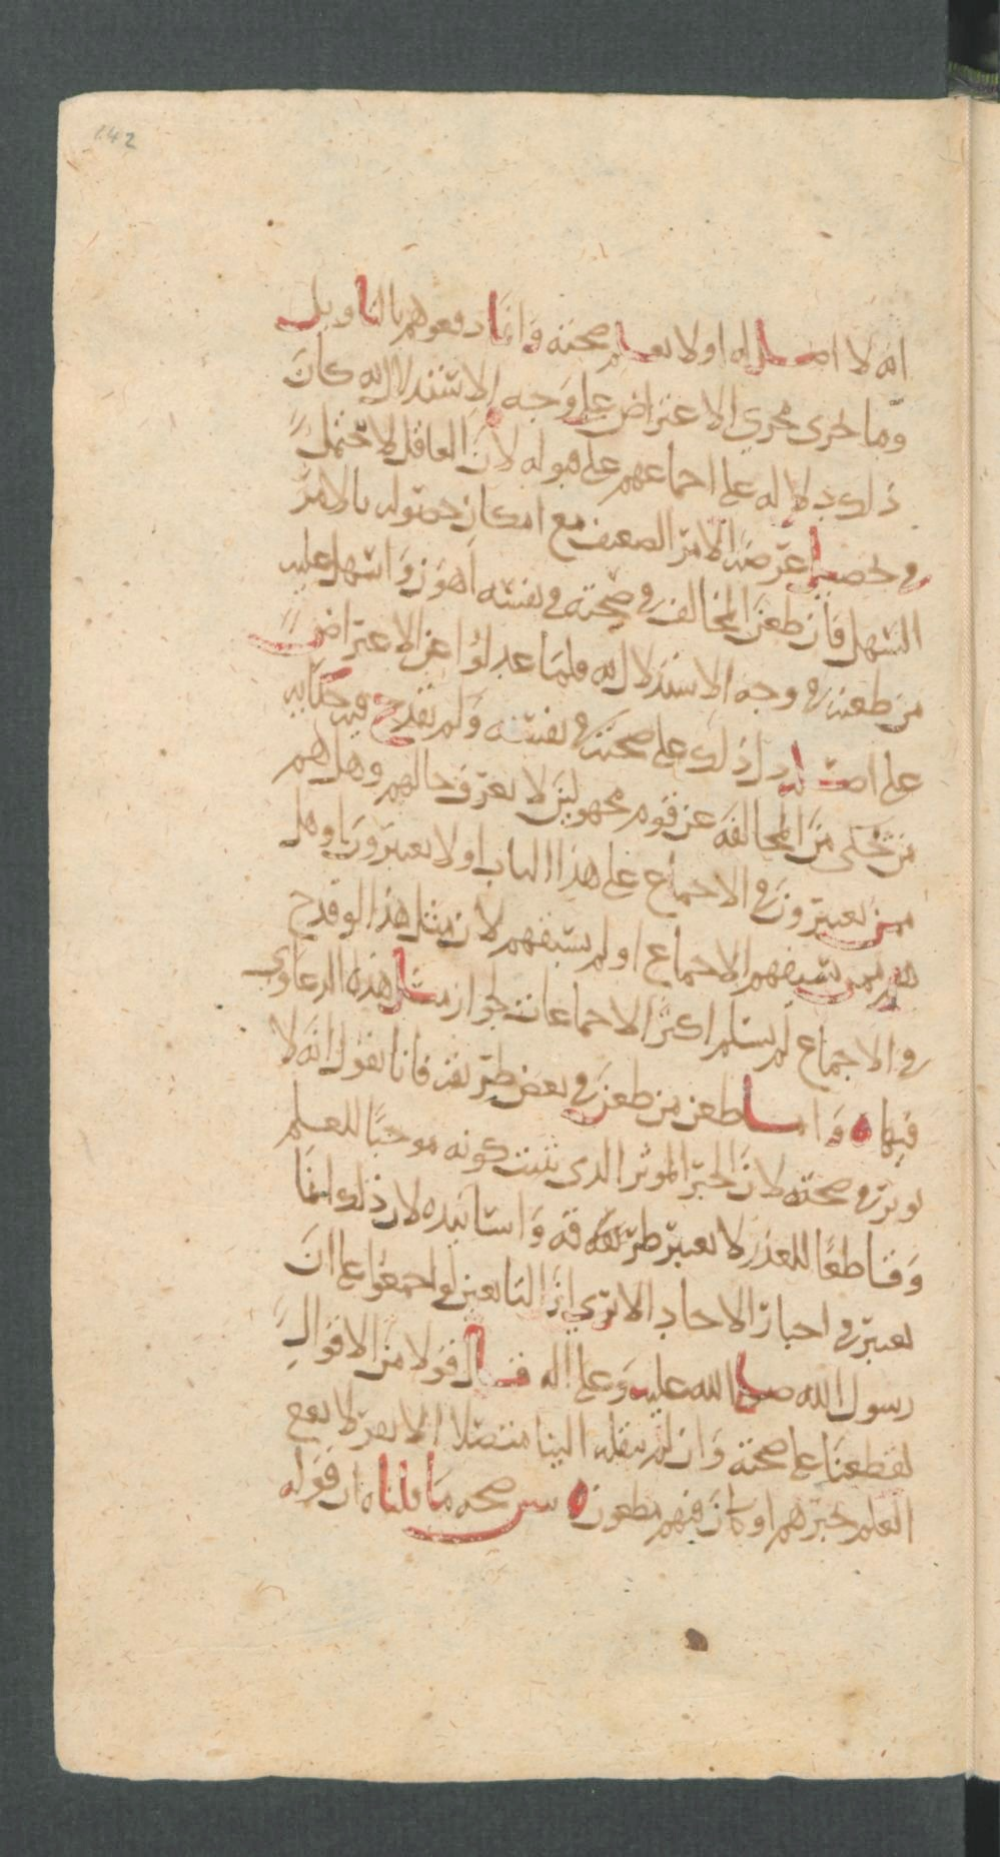 142
انه لا اصل له او لا نعلم صحته وانما دفعوهم بالتاويل
وما جرى مجرى الاعتراض على وجه الاستدلال به كان
ذلك دلالة على اجماعهم على قبوله لان العاقل لا يتحمل
في لخصمه اعتراضه الامر الصعب مع امكان حصوله بالامر
السهل فان طعن المخالف في صحته في نفسه اهون واسهل عليه
من طعنه في وجه الاستدلال به فلما عدلوا عن الاعتراض
على اصله دل ذلك على صحته في نفسه ولم يقدح فيه حكايه
من حكى من المخالفه عن قوم مجهولين لا يعرف حالهم وهل هم
ممن يعتبرون في الاجماع على هذا الباب او لا يعتبرون او هل
هم ممن سبقهم الاجماع او لم يسبقهم لان مثل هذا لو قدح
في الاجماع لم يسلم اكثر الاجماعات لجواز مثل هذه الدعاوي
فيها ه واما طعن من طعن في بعض طريقه فانا نقول انه لا
يوثر في صحته لان الخبر الموثر الذي يثبت كونه موجبا للعلم
وقاطعا للعذر لا يعتبر طريقه واسانيده لان ذلك انما
يعتبر في اخبار الاحاد الا ترى ان التابعين لو اجمعوا على ان
رسول الله صلى الله عليه وعلى اله قال قولا من الاقوال
لقطعنا على صحته وان لم ينقله الينا متصلا اذ لا يعتبر لا يقع
العلم بخبرهم او كان فيهم مطعون ه يبين صحه ما قلناه ان قوله